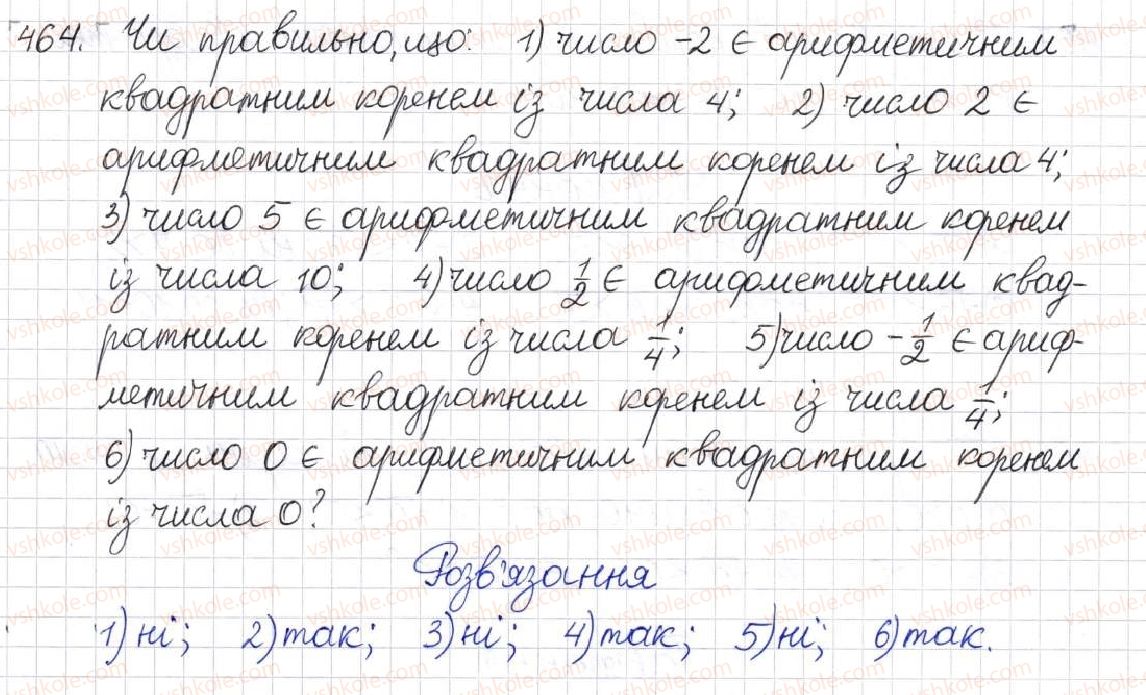 464. Чи правильно, що: 1) число -2 є арифметичним
квадратним коренем із числа 4; 2) число 2 є
арифметичним квадратним коренем із числа 4;
3) число 5 є арифметичним квадратним коренем
із числа 10; 4) число 1/2 є арифметичним квад-
ратним коренем із числа 1/4; 5) число -1/2 є ариф-
метичним квадратним коренем із числа 1/4;
6) число 0 є арифметичним квадратним коренем
із числа 0?
Розв'язання
1) ні; 2) так; 3) ні; 4) так; 5) ні; 6) так.